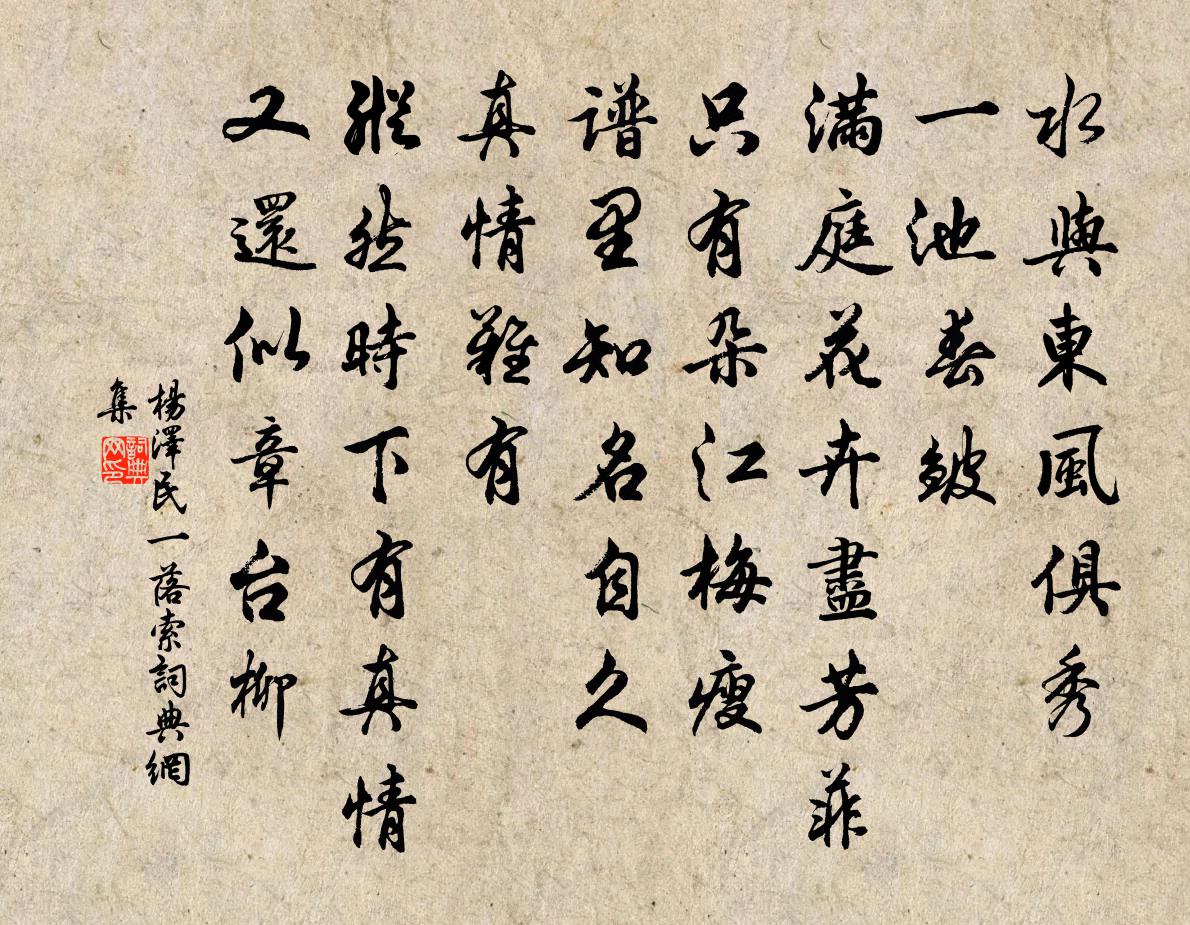 水與東風俱秀
一池春皺
滿庭花卉盡芳菲
只有朵江梅瘦
譜里知名自久
真情難有
縱然時下有真情
又還似章台柳
楊澤民一落索詞典網
集
詞典
网印